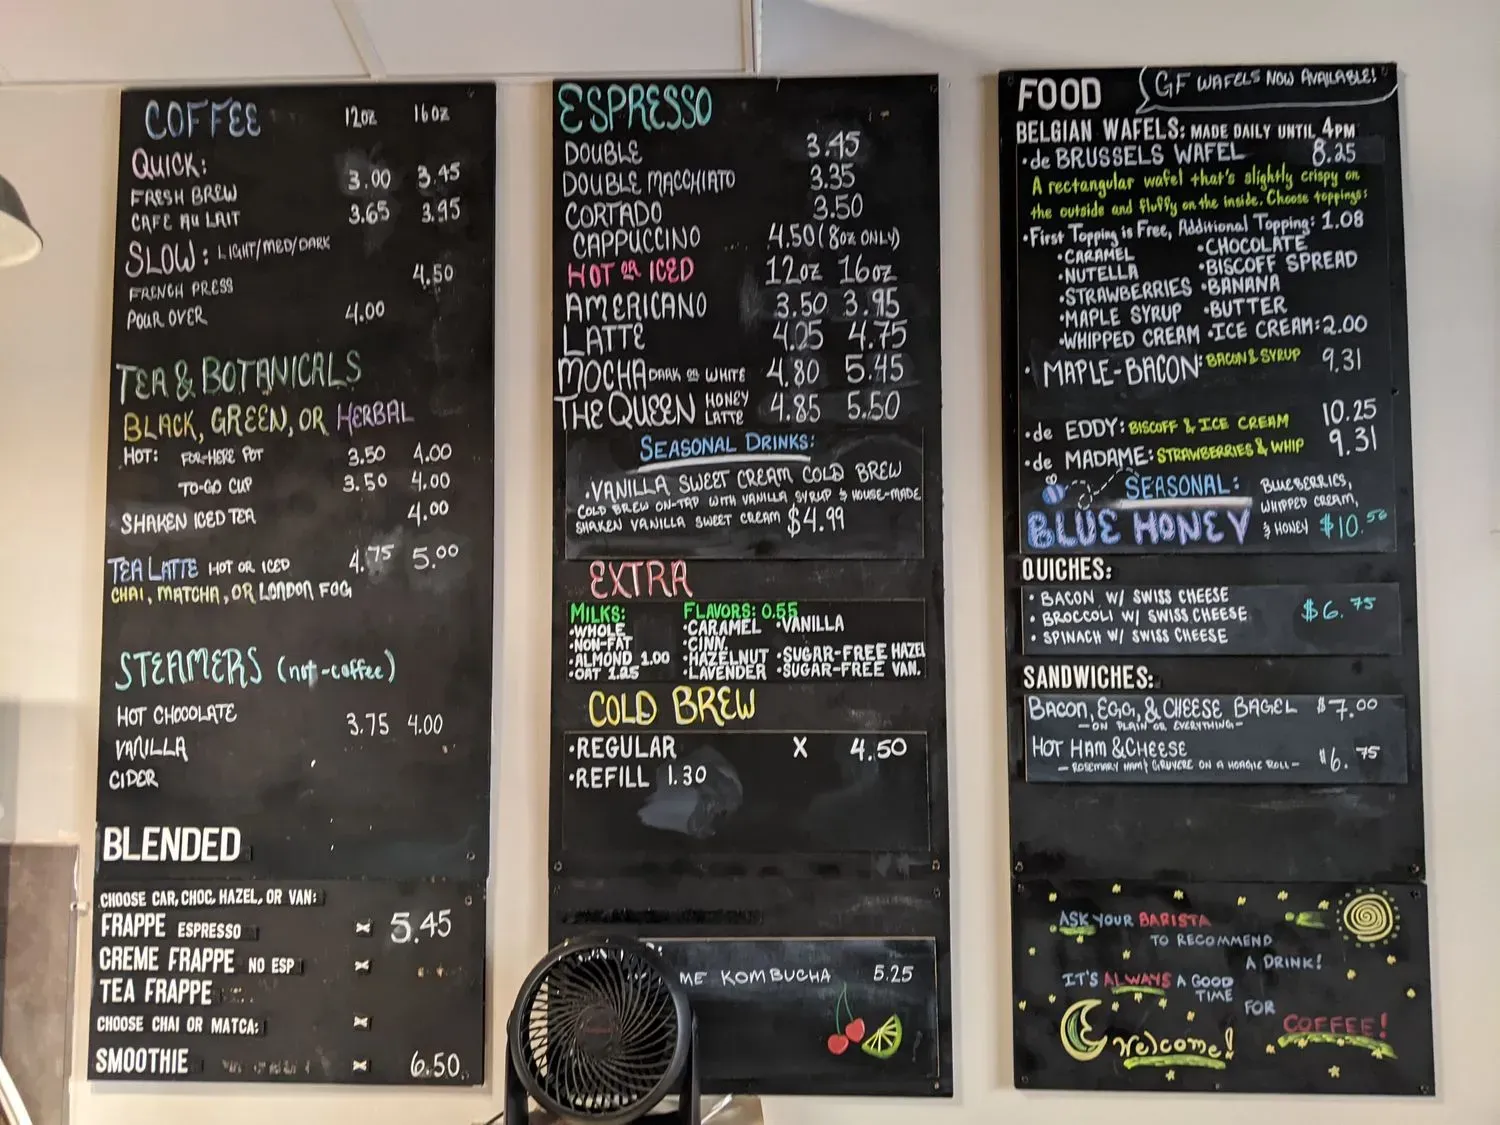 COFFEE 12oz 16oz
QUICK:
FRESH BREW 3.00 3.45
CAFE AU LAIT 3.65 3.95
SLOW: LIGHT/MED/DARK
FRENCH PRESS 4.50
POUR OVER 4.00
TEA & BOTANICALS
BLACK, GREEN, OR HERBAL
HOT: FOR-HERE POT 3.50 4.00
TO-GO CUP 3.50 4.00
SHAKEN ICED TEA 4.00
TEA LATTE HOT OR ICED 4.75 5.00
CHAI, MATCHA, OR LONDON FOG
STEAMERS (not-coffee)
HOT CHOCOLATE 3.75 4.00
VANILLA
CIDER
BLENDED
CHOOSE CAR, CHOC, HAZEL, OR VAN:
FRAPPE ESPRESSO x 5.45
CREME FRAPPE NO ESP x
TEA FRAPPE
CHOOSE CHAI OR MATCA: x
SMOOTHIE x 6.50
ESPRESSO
DOUBLE 3.45
DOUBLE MACCHIATO 3.35
CORTADO 3.50
CAPPUCCINO 4.50 (8oz ONLY)
HOT OR ICED 12oz 16oz
AMERICANO 3.50 3.95
LATTE 4.25 4.75
MOCHA DARK OR WHITE 4.80 5.45
THE QUEEN HONEY LATTE 4.85 5.50
SEASONAL DRINKS:
•VANILLA SWEET CREAM COLD BREW
COLD BREW ON-TAP WITH VANILLA SYRUP & HOUSE-MADE
SHAKEN VANILLA SWEET CREAM $4.99
EXTRA
MILKS: FLAVORS: 0.55
•WHOLE •CARAMEL •VANILLA
•NON-FAT •CINN.
•ALMOND 1.00 •HAZELNUT •SUGAR-FREE HAZEL
•OAT 1.25 •LAVENDER •SUGAR-FREE VAN.
COLD BREW
•REGULAR X 4.50
•REFILL 1.30
ME KOMBUCHA 5.25
FOOD GF WAFELS NOW AVAILABLE!
BELGIAN WAFELS: MADE DAILY UNTIL 4PM
•de BRUSSELS WAFEL 8.25
A rectangular wafel that's slightly crispy on
the outside and fluffy on the inside. Choose toppings:
•First Topping is Free, Additional Topping: 1.08
•CARAMEL •CHOCOLATE
•NUTELLA •BISCOFF SPREAD
•STRAWBERRIES •BANANA
•MAPLE SYRUP •BUTTER
•WHIPPED CREAM •ICE CREAM: 2.00
• MAPLE-BACON: BACON & SYRUP 9.31
•de EDDY: BISCOFF & ICE CREAM 10.25
•de MADAME: STRAWBERRIES & WHIP 9.31
SEASONAL: BLUEBERRIES,
WHIPPED CREAM,
BLUE HONEY & HONEY $10.50
QUICHES:
• BACON W/ SWISS CHEESE
• BROCCOLI W/ SWISS CHEESE $6.75
• SPINACH W/ SWISS CHEESE
SANDWICHES:
BACON, EGG, & CHEESE BAGEL $7.00
-ON PLAIN OR EVERYTHING-
HOT HAM & CHEESE $6.75
-ROSEMARY HAM & GRUYERE ON A HOAGIE ROLL-
ASK YOUR BARISTA
TO RECOMMEND
A DRINK!
IT'S ALWAYS A GOOD
TIME
FOR
COFFEE!
Welcome!